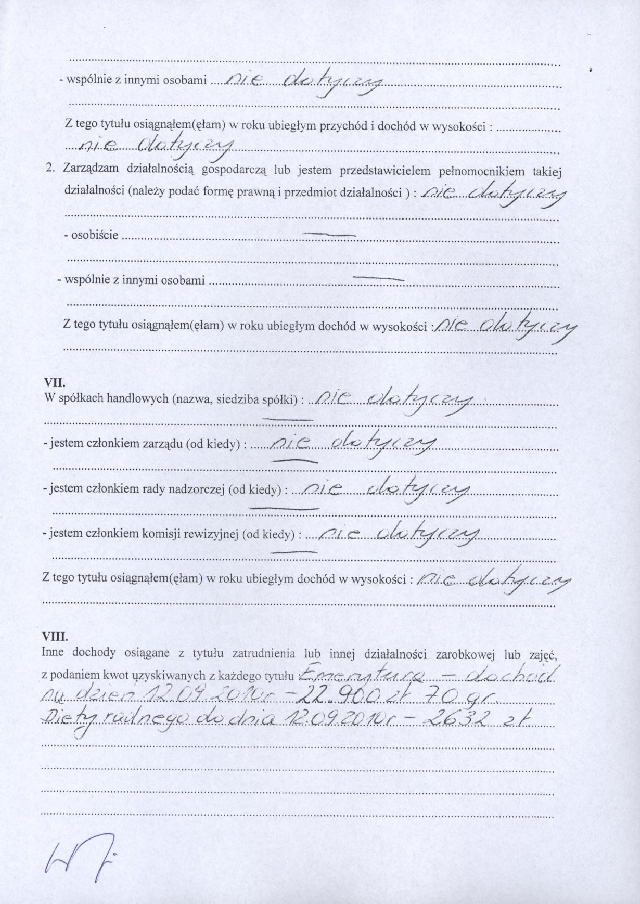 - wspólnie z innymi osobami ....nie dotyczy
Z tego tytułu osiągnąłem(ęłam) w roku ubiegłym przychód i dochód w wysokości : ....................
.....nie dotyczy
2. Zarządzam działalnością gospodarczą lub jestem przedstawicielem pełnomocnikiem takiej
działalności (należy podać formę prawną i przedmiot działalności ) : nie dotyczy
- osobiście .................... —
- wspólnie z innymi osobami .................... —
Z tego tytułu osiągnąłem(ęłam) w roku ubiegłym dochód w wysokości : nie dotyczy
VII.
W spółkach handlowych (nazwa, siedziba spółki) : ..nie dotyczy
- jestem członkiem zarządu (od kiedy) : ......nie dotyczy
- jestem członkiem rady nadzorczej (od kiedy) : ...nie dotyczy
- jestem członkiem komisji rewizyjnej (od kiedy) : ...nie dotyczy
Z tego tytułu osiągnąłem(ęłam) w roku ubiegłym dochód w wysokości : nie dotyczy
VIII.
Inne dochody osiągane z tytułu zatrudnienia lub innej działalności zarobkowej lub zajęć,
z podaniem kwot uzyskiwanych z każdego tytułu Emerytura – dochód
na dzień 12.09.2010r – 22.900 zł 70 gr
Diety radnego do dnia 12.09.2010r – 2632 zł